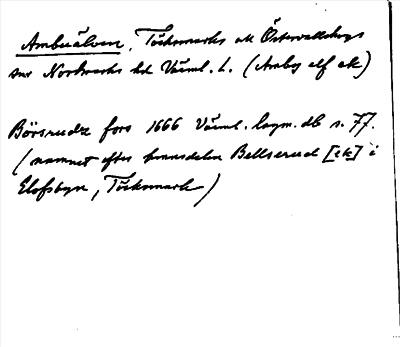 Ambuälven, Töcksmarks ok Östervallskogs
snr Nordmarks hd Värml. l. (Amboy elf ek)
Börsrudz fors 1666 Värml. lagm. db s. 77.
(namnet efter hemmdelen Bellserud [ek] i
Elofsbyn, Töcksmark)